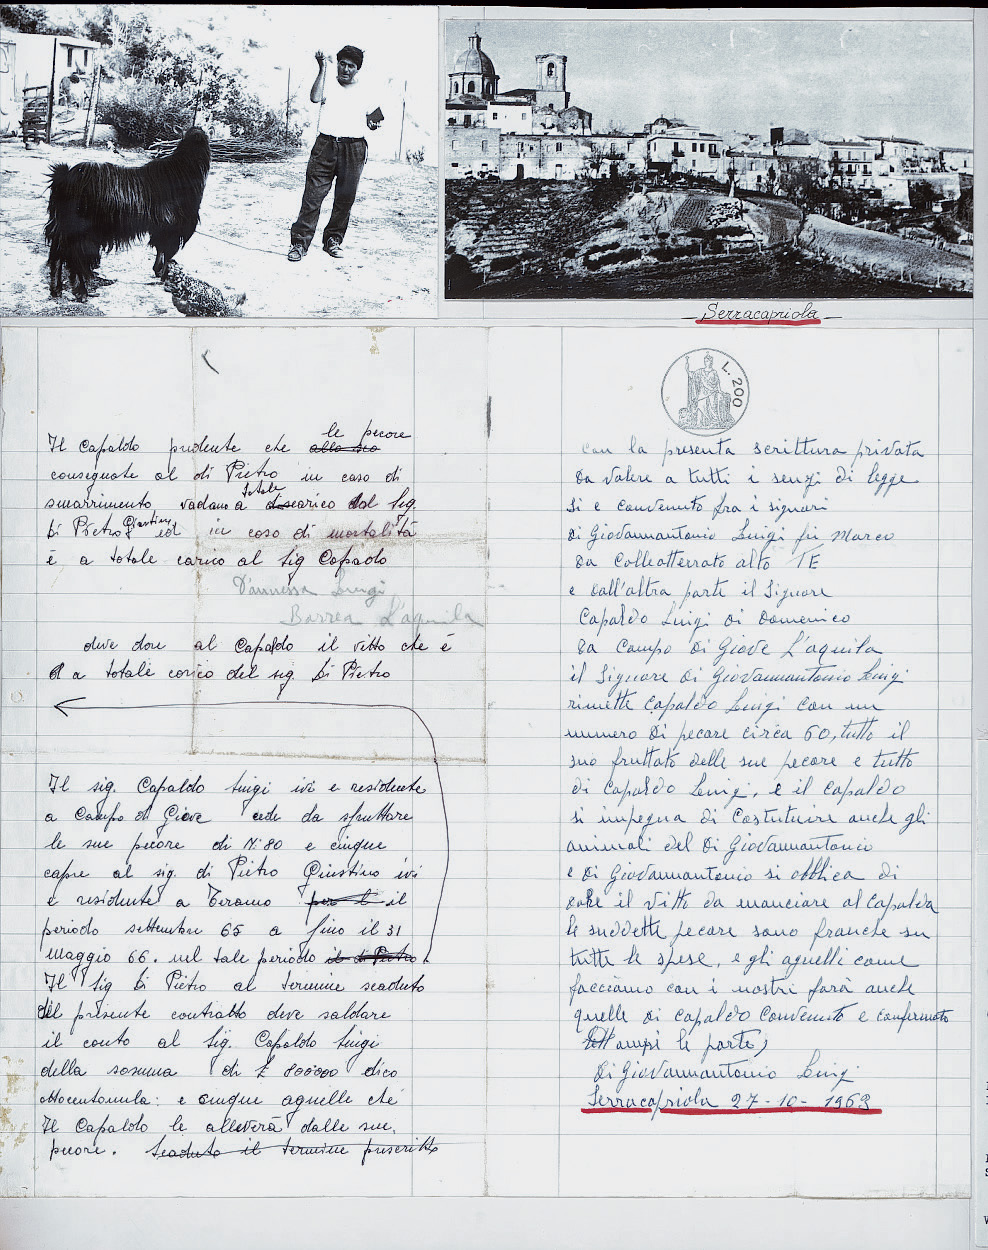 Serracapriola
Il Capaldo prudente che le pecore
consegnate al di Pietro in caso di
smarrimento vadano a totale discarico dal Sig.
Di Pietro Giustino ed in caso di mortalità
è a totale carico al Sig Capaldo
D'annessa Luigi
Barrea L'aquila
deve dare al Capaldo il vitto che è
a totale carico del sig. Di Pietro
Il sig. Capaldo Luigi ivi e residente
a Campo di Giove cede da sfruttare
le sue pecore di N. 80 e cinque
capre al sig. di Pietro Giustino ivi
e residente a Teramo il
periodo settembre 65 a fino il 31
maggio 66. nel tale periodo
Il Sig Di Pietro al termine scaduto
del presente contratto deve saldare
il conto al Sig. Capaldo Luigi
della somma di £ 800000 dico
ottocentomila: e cinque agnelle che
Il Capaldo le alleverà dalle sue
pecore. Scaduto il termine prescritto
L. 200
con la presenta scrittura privata
da valere a tutti i senzi di legge
si e convenuto fra i signori
di Giovannantonio Luigi fu Marco
da Colleatterrato alto TE
e dall'altra parte il Signore
Capaldo Luigi di Domenico
da Campo di Giove L'aquila
il Signore di Giovannantonio Luigi
rimette Capaldo Luigi con un
numero di pecore circa 60, tutto il
suo fruttato delle sue pecore e tutto
di Capaldo Luigi, e il Capaldo
si impegna di Costutuire anche gli
animali del Di Giovannantonio
e Di Giovannantonio si obblica di
dare il vitto da manciare al Capalda
le suddette pecore sono franche su
tutte le spese, e gli agnelli come
facciamo con i nostri farà anche
quelle di Capaldo Convenuto e confermato
ampi le parte,
Di Giovannantonio Luigi
Serracapriola 27-10-1963